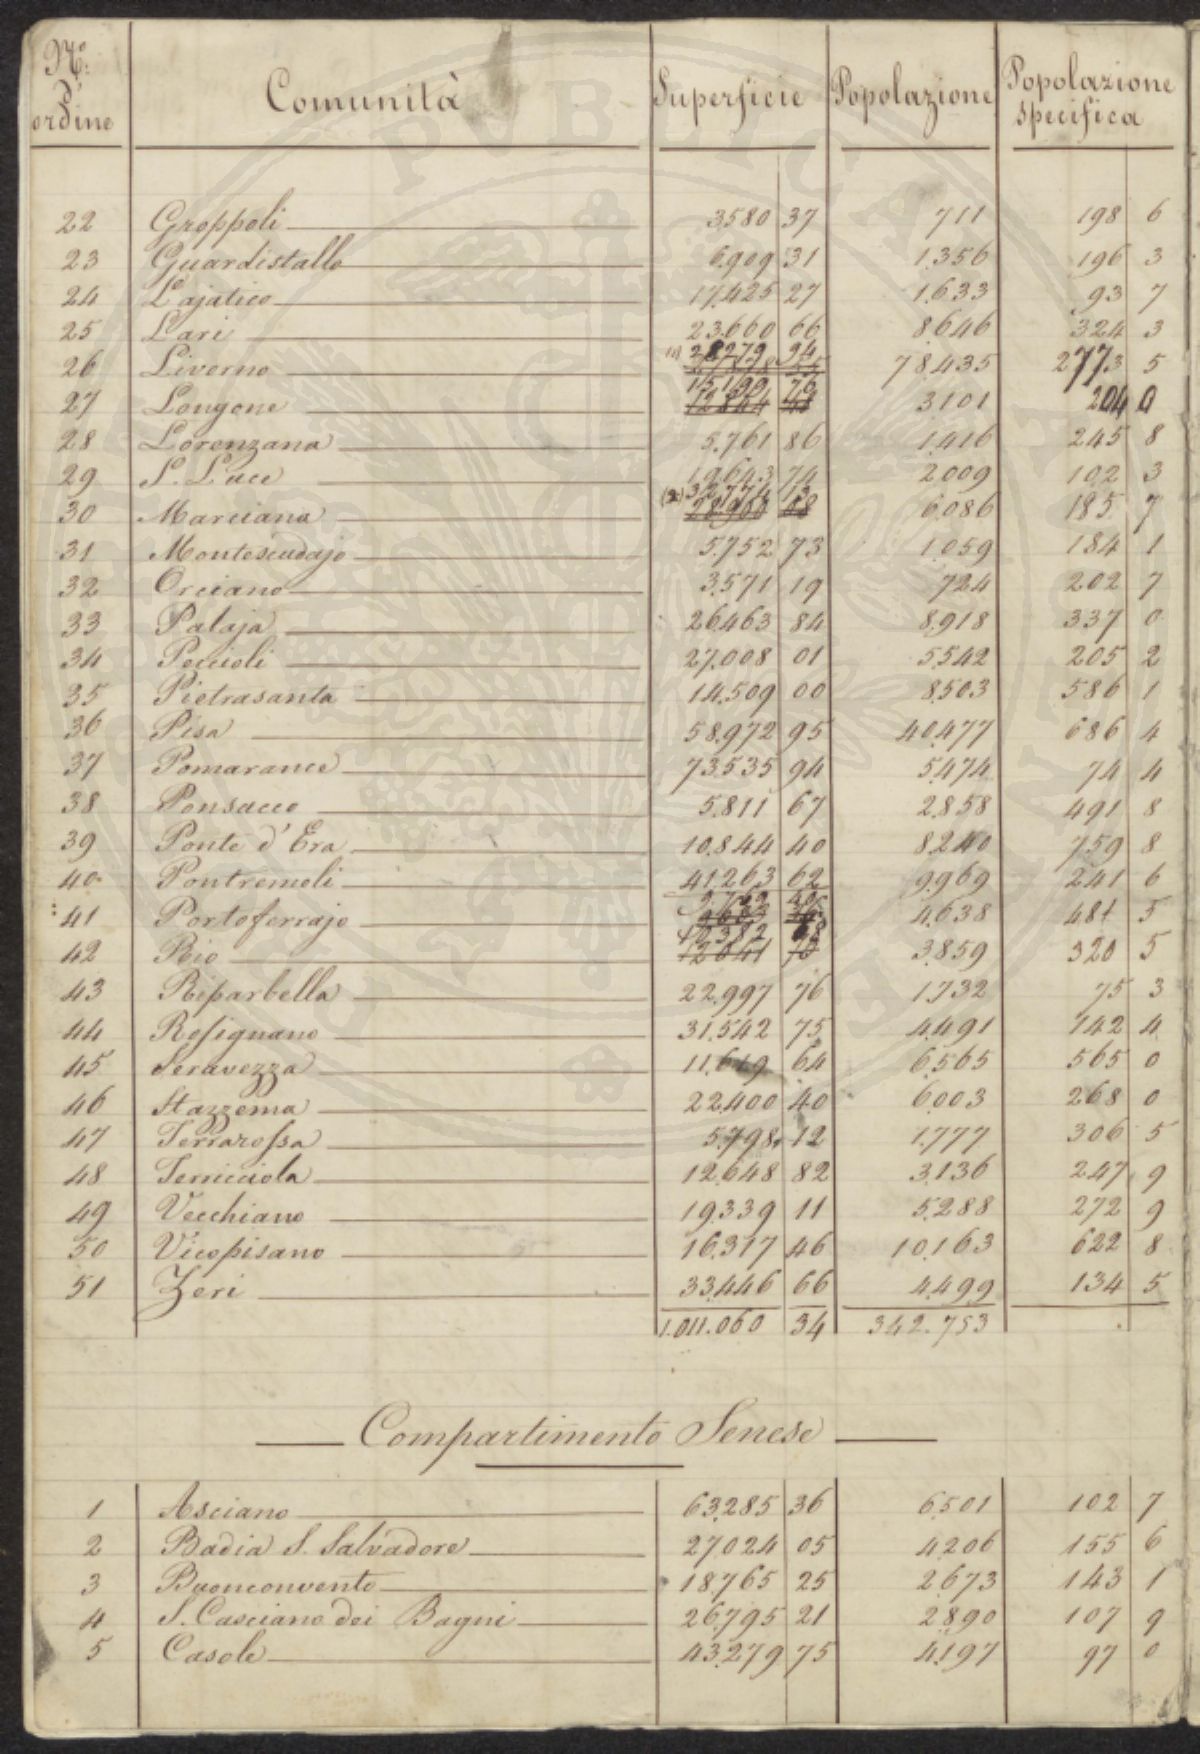 N.º d' ordine | Comunità | Superficie | Popolazione | Popolazione specifica
22 Groppoli 3580 37 711 198 6
23 Guardistallo 6.909 31 1.356 196 3
24 Lajatico 17.425 27 1.633 93 7
25 Lari 23.660 66 8646 324 3
26 Livorno (1) 28279 94 78.435 2773 5
27 Longone 15190 76 3101 204 0
28 Lorenzana 5.761 86 1.416 245 8
29 S. Luce 19.643 74 2009 102 3
30 Marciana (2) 32774 13 6.086 185 7
31 Montescudajo 5.752 73 1.059 184 1
32 Orciano 3.571 19 724 202 7
33 Palaja 26.463 84 8.918 337 0
34 Peccioli 27.008 01 5.542 205 2
35 Pietrasanta 14.509 00 8.503 586 1
36 Pisa 58.972 95 40.477 686 4
37 Pomarance 73.535 94 5.474 74 4
38 Ponsacco 5.811 67 2.858 491 8
39 Ponte d' Era 10.844 40 8.240 759 8
40 Pontremoli 41.263 62 9.969 241 6
41 Portoferrajo 4.638 481 5
42 Rio 3.859 320 5
43 Riparbella 22.997 76 1.732 75 3
44 Rosignano 31.542 75 4.491 142 4
45 Seravezza 11.619 64 6.565 565 0
46 Stazzema 22.400 40 6.003 268 0
47 Terrarossa 5.798 12 1.777 306 5
48 Terricciola 12.648 82 3.136 247 9
49 Vecchiano 19.339 11 5.288 272 9
50 Vicopisano 16.317 46 10.163 622 8
51 Zeri 33.446 66 4.499 134 5
1.011.060 34 342.753
Compartimento Senese
1 Asciano 63.285 36 6.501 102 7
2 Badia S. Salvadore 27.024 05 4.206 155 6
3 Buonconvento 18.765 25 2673 143 1
4 S. Casciano dei Bagni 26.795 21 2890 107 9
5 Casole 43.279 75 4.197 97 0